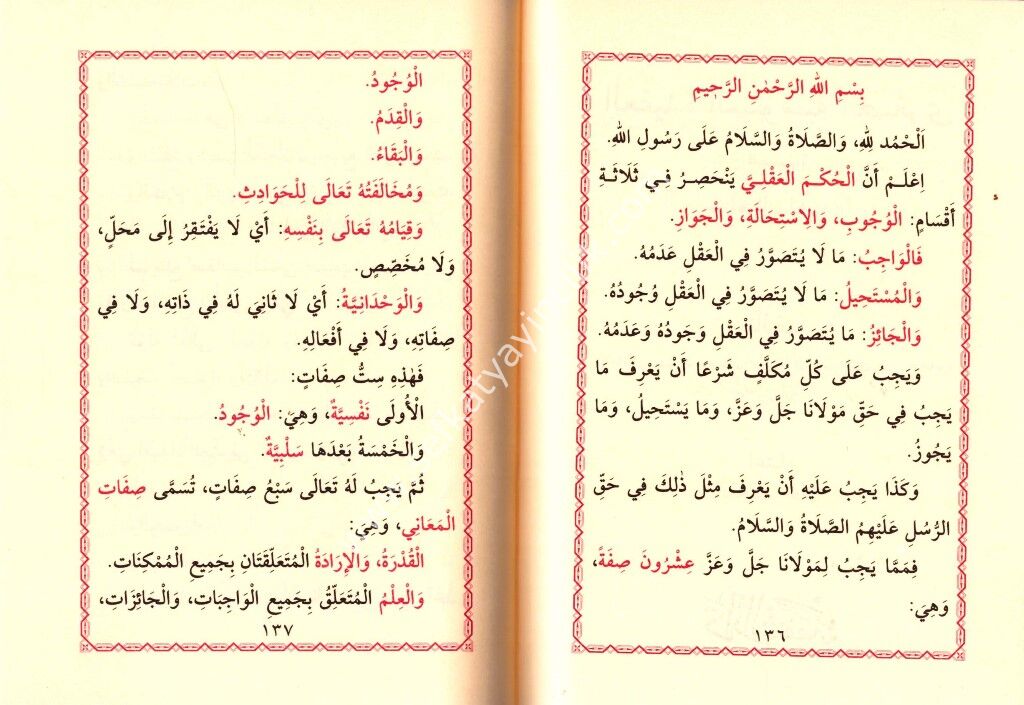 بِسْمِ اللهِ الرَّحْمٰنِ الرَّحِيمِ
اَلْحَمْدُ لِلهِ، وَالصَّلَاةُ وَالسَّلَامُ عَلَى رَسُولِ اللهِ.
اِعْلَمْ أَنَّ الْحُكْمَ الْعَقْلِيَّ يَنْحَصِرُ فِي ثَلَاثَةِ
أَقْسَامٍ: الْوُجُوبِ، وَالِاسْتِحَالَةِ، وَالْجَوَازِ.
فَالْوَاجِبُ: مَا لَا يُتَصَوَّرُ فِي الْعَقْلِ عَدَمُهُ.
وَالْمُسْتَحِيلُ: مَا لَا يُتَصَوَّرُ فِي الْعَقْلِ وُجُودُهُ.
وَالْجَائِزُ: مَا يُتَصَوَّرُ فِي الْعَقْلِ وَجُودُهُ وَعَدَمُهُ.
وَيَجِبُ عَلَى كُلِّ مُكَلَّفٍ شَرْعًا أَنْ يَعْرِفَ مَا
يَجِبُ فِي حَقِّ مَوْلَانَا جَلَّ وَعَزَّ، وَمَا يَسْتَحِيلُ، وَمَا
يَجُوزُ.
وَكَذَا يَجِبُ عَلَيْهِ أَنْ يَعْرِفَ مِثْلَ ذٰلِكَ فِي حَقِّ
الرُّسُلِ عَلَيْهِمُ الصَّلَاةُ وَالسَّلَامُ.
فَمِمَّا يَجِبُ لِمَوْلَانَا جَلَّ وَعَزَّ عِشْرُونَ صِفَةً،
وَهِيَ:
١٣٦
الْوُجُودُ.
وَالْقِدَمُ.
وَالْبَقَاءُ.
وَمُخَالَفَتُهُ تَعَالَى لِلْحَوَادِثِ.
وَقِيَامُهُ تَعَالَى بِنَفْسِهِ: أَيْ لَا يَفْتَقِرُ إِلَى مَحَلٍّ،
وَلَا مُخَصِّصٍ.
وَالْوَحْدَانِيَّةُ: أَيْ لَا ثَانِيَ لَهُ فِي ذَاتِهِ، وَلَا فِي
صِفَاتِهِ، وَلَا فِي أَفْعَالِهِ.
فَهٰذِهِ سِتُّ صِفَاتٍ:
الْأُولَى نَفْسِيَّةٌ، وَهِيَ: الْوُجُودُ.
وَالْخَمْسَةُ بَعْدَهَا سَلْبِيَّةٌ.
ثُمَّ يَجِبُ لَهُ تَعَالَى سَبْعُ صِفَاتٍ، تُسَمَّى صِفَاتِ
الْمَعَانِي، وَهِيَ:
الْقُدْرَةُ، وَالْإِرَادَةُ الْمُتَعَلِّقَتَانِ بِجَمِيعِ الْمُمْكِنَاتِ.
وَالْعِلْمُ الْمُتَعَلِّقُ بِجَمِيعِ الْوَاجِبَاتِ، وَالْجَائِزَاتِ،
١٣٧